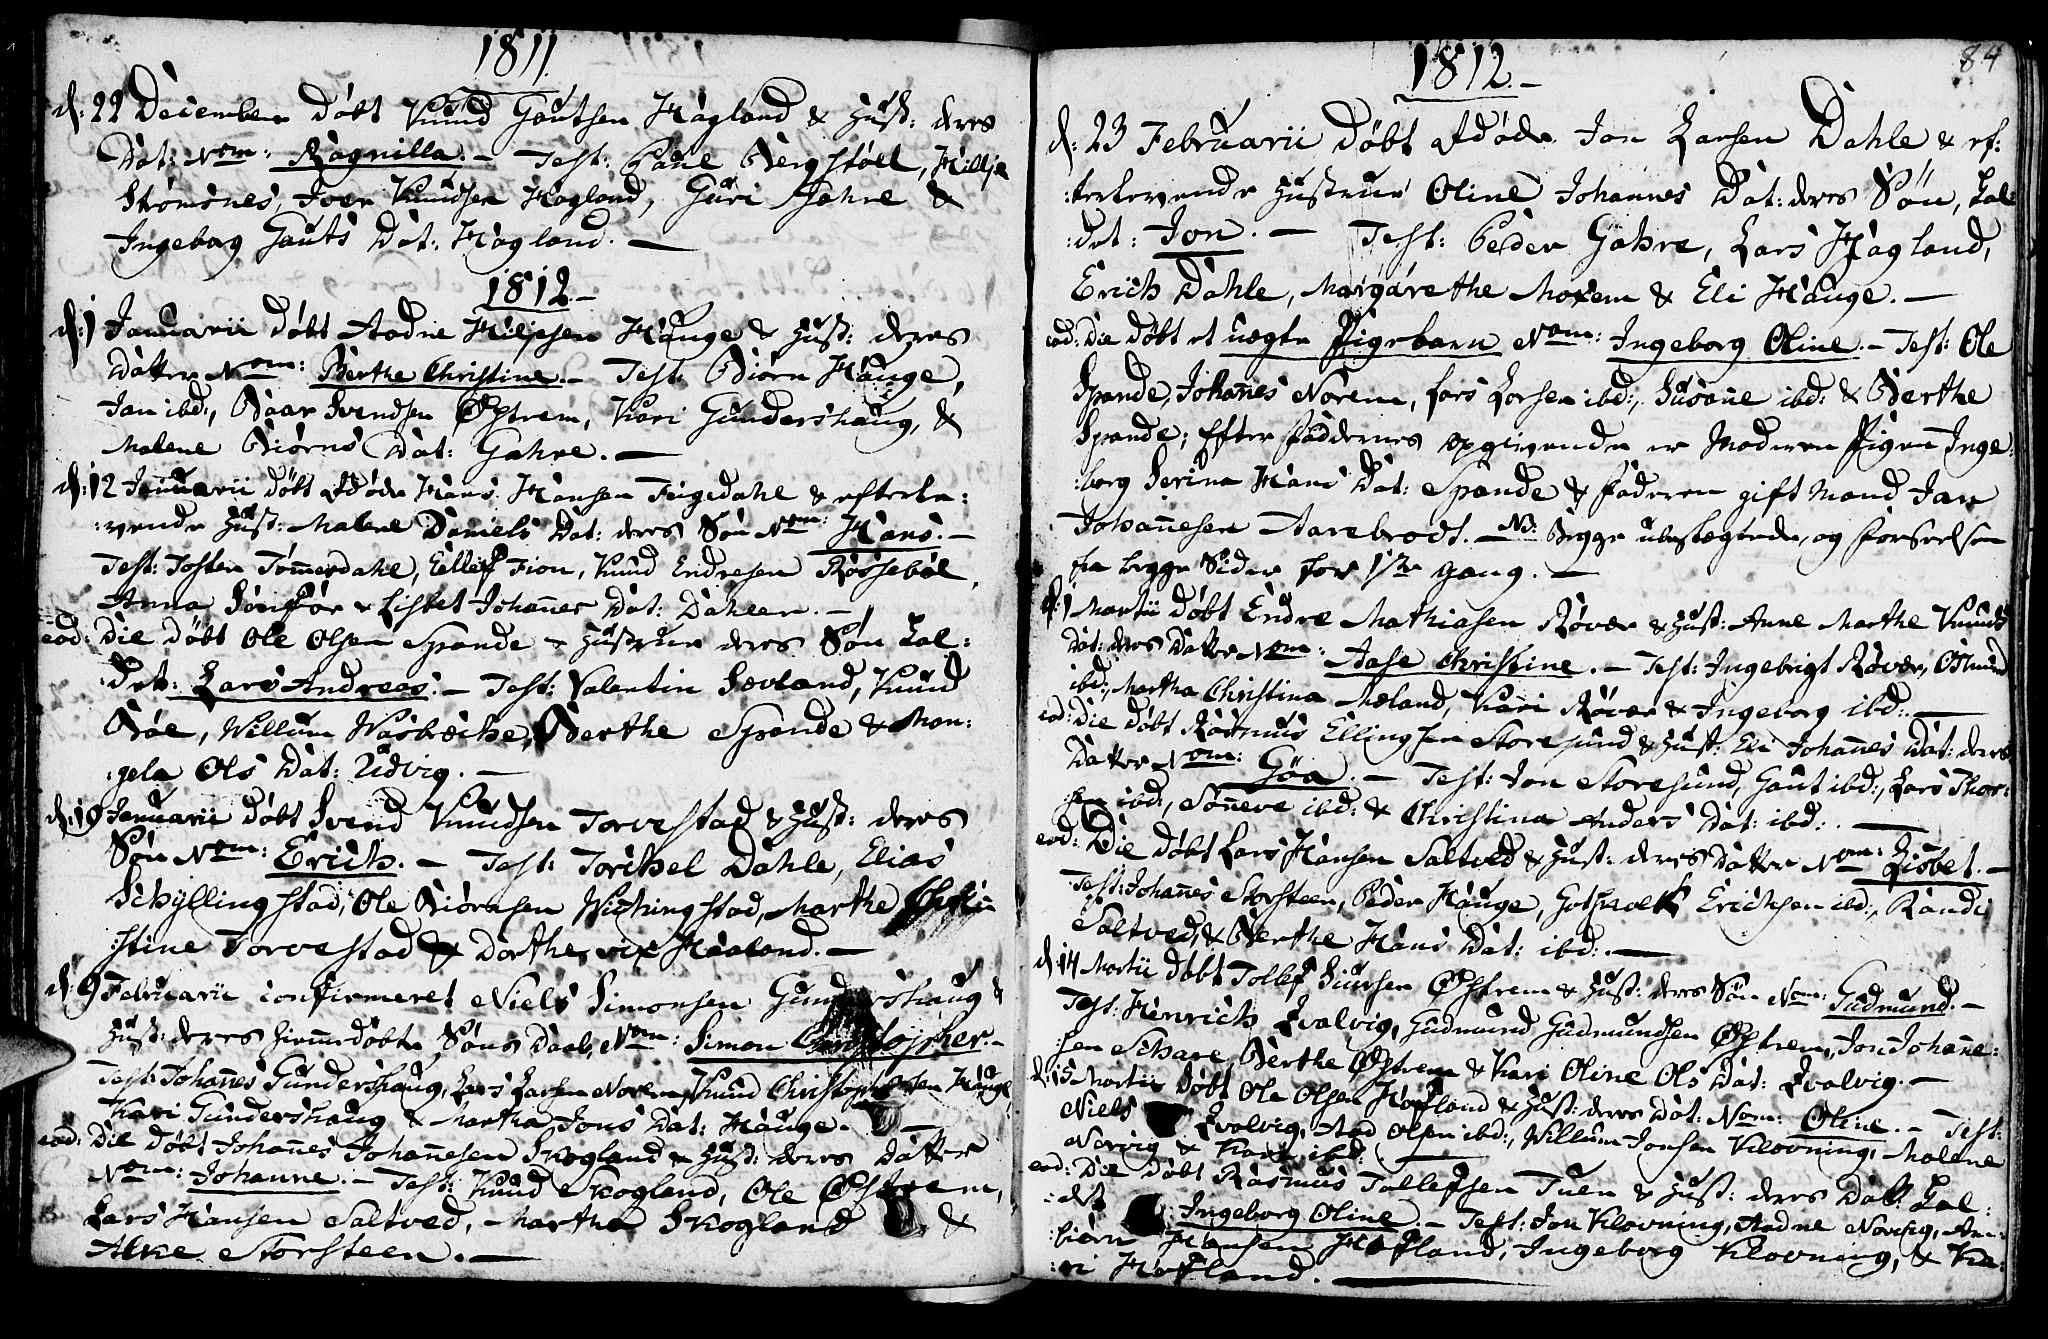 1811.
d: 22 December Döbt Knud Gautsen Hagland & Hust: deres
Dat: Nom: Ragnilla. - Test: Paul Bergstöel, Hillje
Strömsnes, Iver Knudsen Hagland, Guri Gahre &
Ingeborg Gauts Dat: Hagland. -
1812. -
d: 1 Januarii döbt Aadne Hiljesen Hauge & Hust: deres
Datter Nom: Berthe Christine. - Test: Biörn Hauge,
Jan ibd:, Baar Svendsen Østrem, Kari Gundershaug, &
Malene Biörns Dat: Gahre. -
d: 12 Januarii döbt Afdöde Hans Hansen Tugedahl & efterle:
:vende Hust: Malene Daniels Dat: deres Sön Nom: Hans. -
Test: Josten Tömmerdahl, Ellef Fion, Knud Endresen Rosseböe,
Anna & Lisbet Johannes Dat: Dahlen. -
eod: Die döbt Ole Olsen Spande & Hustrue deres Sön Kal:
:det: Lars Andreas. - Test: Valentin Sævland, Knud
Böe, Willum Berthe Spande & Man:
:gela Ols Dat: Udvig. -
d: 19 Januarii döbt Svend Knudsen Torvestad & Hust: deres
Sön Nom: Erich. - Test: Torchel Dahle, Elias
Schyllingstad, Ole Biörnsen Wichingstad, Marthe Chri
:stine Torvestad & Dorthe Haaland. -
d: 9 Februarii confirmeret Niels Simonsen Gundershaug &
Hust: deres hiemmedöbte Söns Daab, Nom: Simon Christopher. -
Test: Johannes Gundershaug, Lars Larsen Norem, Knud Christophersen Hauge,
Kari Gundershaug & Martha Jons Dat: Hauge. -
eod: Die döbt Johannes Johannesen Skogland & Hust: deres Datter
Nom: Johanne. - Test: Knud Skogland, Ole Østrem,
Lars Hansen Saltved, Martha Skogland &
Alke Storsteen. -
84
1812. -
d: 23 Februarii Döbt Afdöde Jon Larsen Dahle & ef:
:terlevende Hustrue Oline Johannes Dat: deres Sön, Kal
:det: Jon. - Test: Peder Gahre, Lars Hagland,
Erich Dahle, Margarethe Moxem & Eli Hauge. -
eod: Die döbt et uægte Pigebarn Nom: Ingeborg Oline. - Test: Ole
Spande, Johannes Norem, Lars Larsen ibd:, Susane ibd: & Berthe
Spande; Efter Faddernes opgivende er Moderen Pigen Inge:
:borg Serina Hans Dat: Spande & Faderen gift Mand Jan
Johannesen Aarebrodt. - NB: Begge ubeslægtede, og Forseelsen
fra begge Sider for 1ste gang. -
d: 1 Martii döbt Endre Mathiasen Röver & Hust: Anne Marthe Knuds
Dat: deres Datter Nom: Aase Christine. - Test: Ingebrigt Röver, Osmund
ibd:, Martha Christina Mæland, Kari Röver & Ingeborg ibd: -
eod: Die döbt Rasmus Ellingsen Storesund & Hust: Eli Johannes Dat: deres
Datter Nom: Göa. - Test: Jon Storesund, Gaut ibd:, Lars Thor:
:sen ibd:, Sönneve ibd: & Christina Anders Dat: ibd: -
eod: Die döbt Lars Hansen Saltved & Hust: deres Datter Nom: Lisbet. -
Test: Johannes Storsteen, Peder Hauge, Gotskalk Erichsen ibd:, Randi
Saltved, & Berthe Hans Dat: ibd: -
d: 14 Martii döbt Tollef Siursen Østrem & Hust: deres Sön Nom: Gudmund. -
Test: Henrich Qvalvig, Gudmund Gudmundsen Østrem, Jon Johanne:
:sen Schare, Berthe Østrem & Kari Oline Ols Dat: Qvalvig. -
d: 15 Martii döbt Ole Olsen Hofland & Hust: deres Dat: Nom: Oline. - Test:
Niels Qvalvig, Aad Olsen ibd:, Willum Jonsen Klovning, Malene
Norvig & Kari ibd: -
eod: Die döbt Rasmus Tollefsen Tuen & Hust: deres Datt: Kal:
:det: Ingeborg Oline. - Test: Jon Klovning, Aadne Norvig, An:
:biörn Hansen Hofland, Ingeborg Klovning, & Ka:
:ri Hofland. -